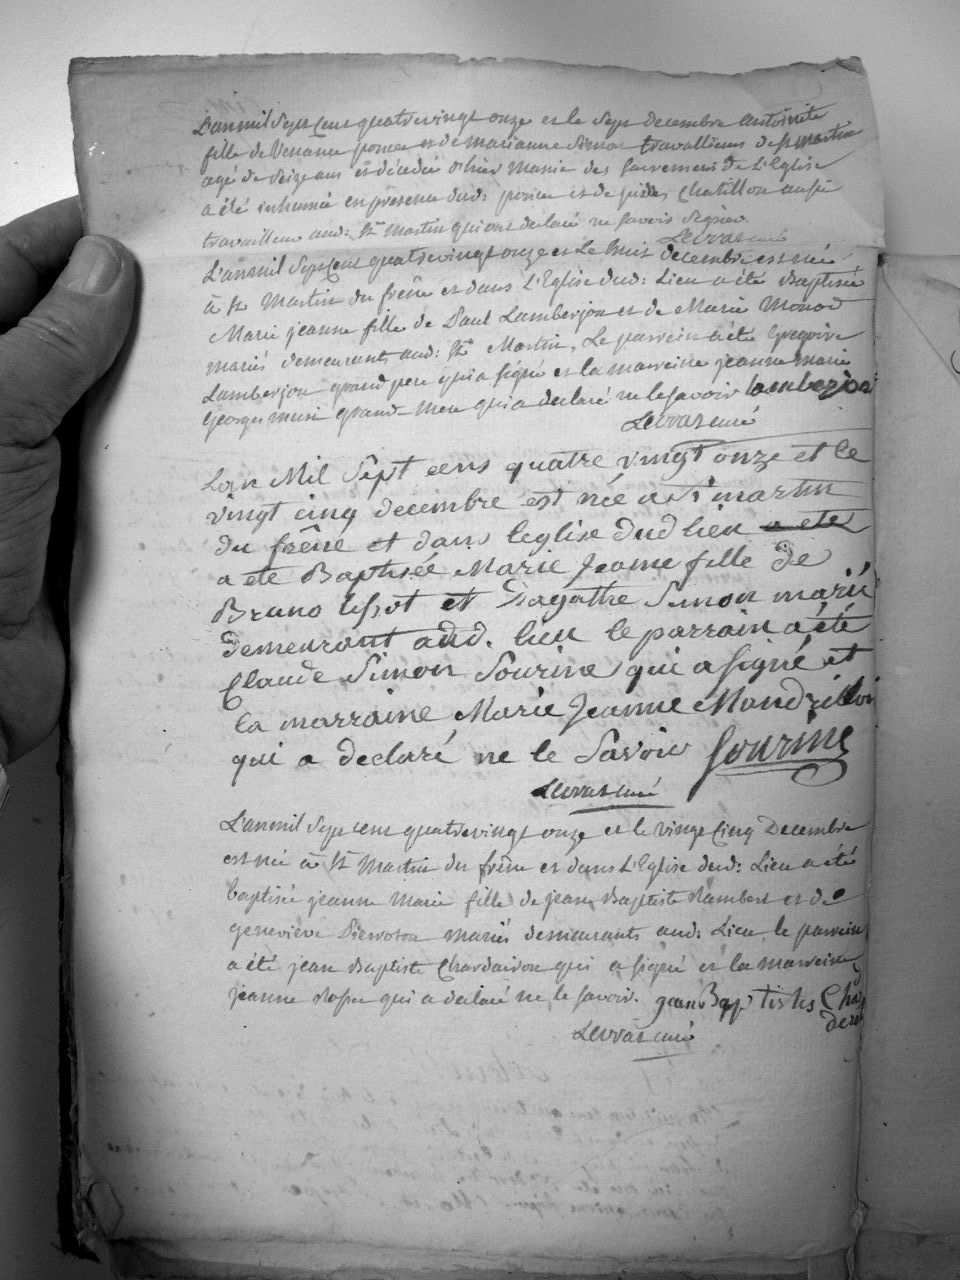 L'an mil Sept Cent quatrevingt onze et le Sept decembre antoinette
fille de Venance poncet et de marianne travailleurs de St martin
agé de Seize ans est décédée hier munie des Sacremens de L'Eglise
a été inhumée en presence dud: poncet et de Chatillon aussi
travailleur aud: St Martin qui ont declaré ne Savoir Signer
Levvas curé
L'an mil Sept Cent quatrevingt onze et Le huit decembre est née
à St Martin du frêne et dans L'Eglise dud: Lieu a été Baptisée
Marie jeanne fille de Paul Lamberjon et de Marie Monod
mariés demeurant aud: St Martin, Le parrein a été Gregoire
Lamberjon grand pere qui a signé et la marreine jeanne marie
Georges grand mere qui a declaré ne le savoir lamberjon
Levvas curé
Lan Mil Sept cens quatre vingt onze et le
vingt cinq decembre est née a St martin
du frêne et dans leglise dud lieu a ete
a ete Baptisée Marie Jeanne fille de
Bruno et d'agathe Simon marié
demeurant aud. lieu le parrain a été
Claude Simon Sourine qui a signé et
la marraine Marie Jeanne Mandrillon
qui a declaré ne le Savoir Sourine
Levvas curé
L'an mil Sept cent quatrevingt onze et le vingt Cinq Decembre
est née à St Martin du frêne et dans L'Eglise dud: Lieu a été
baptisée jeanne Marie fille de jean Baptiste Rambert et de
geneviève mariés demeurants aud: Lieu le parrein
a été jean Baptiste Chardeiron qui a signé et la marreine
jeanne qui a declaré ne le savoir. jean Bap tiste Char
deron
Levvas curé